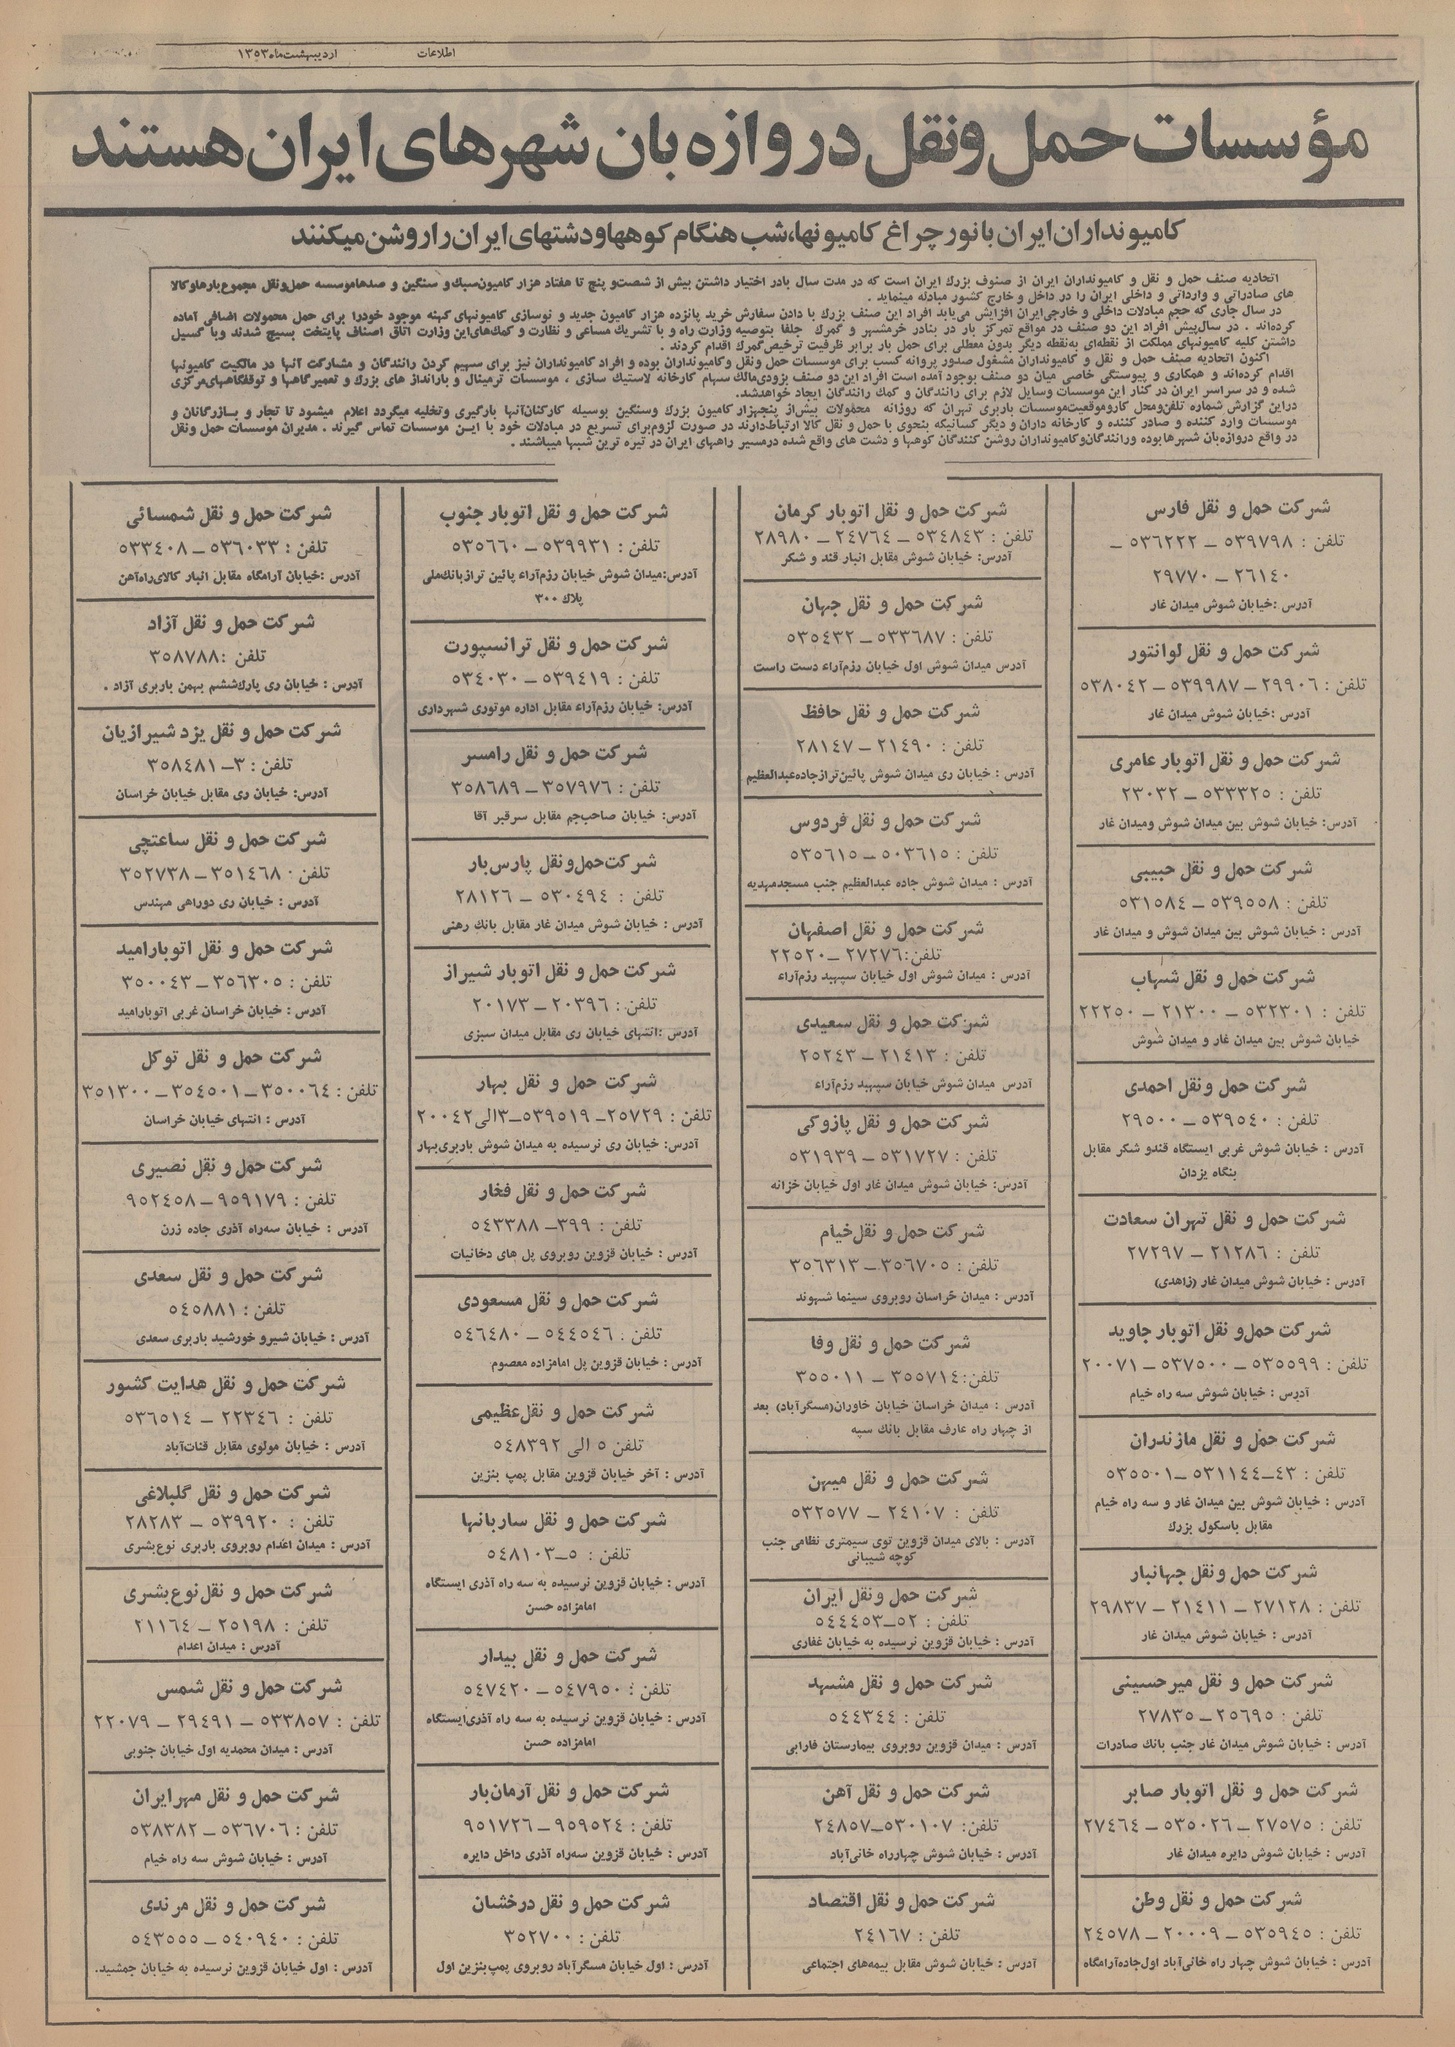 اطلاعات
اردیبهشت‌ماه ۱۳۵۳
مؤسسات حمل و نقل دروازه بان شهرهای ایران هستند
کامیونداران ایران با نور چراغ کامیونها، شب هنگام کوهها و دشتهای ایران را روشن میکنند
اتحادیه صنف حمل و نقل و کامیونداران ایران از صنوف بزرك ایران است که در مدت سال بادر اختیار داشتن بیش از شصت‌و پنج تا هفتاد هزار کامیون‌سبك‌و سنگین و صدها‌موسسه حمل‌و‌نقل مجموع‌بارهاو‌کالا
های صادراتی و وارداتی و داخلی ایران را در داخل و خارج کشور مبادله مینماید .
در سال جاری که حجم مبادلات داخلی و خارجی‌ایران افزایش می‌یابد افراد این صنف بزرك با دادن سفارش خرید پانزده هزار کامیون جدید و نوسازی کامیونهای کهنه موجود خودرا برای حمل محمولات اضافی آماده
کرده‌اند . در سال‌پیش افراد این دو صنف در مواقع تمرکز بار در بنادر خرمشهر و گمرك جلفا بتوصیه وزارت راه و با تشریك مساعی و نظارت و کمك‌های‌این وزارت اتاق اصناف پایتخت بسیج شدند وبا گسیل
داشتن کلیه کامیونهای مملکت از نقطه‌ای به‌نقطه دیگر بدون معطلی برای حمل بار برابر ظرفیت ترخیص‌گمرك اقدام کردند .
اکنون اتحادیه صنف حمل و نقل و کامیونداران مشغول صدور پروانه کسب برای موسسات حمل ونقل وکامیونداران بوده و افراد کامیونداران نیز برای سهیم کردن رانندگان و مشارکت آنها در مالکیت کامیونها
اقدام کرده‌اند و همکاری و پیوستگی خاصی میان دو صنف بوجود آمده است افراد این دو صنف بزودی‌مالك سهام کارخانه لاستیك سازی ، موسسات ترمینال و بارانداز های بزرك و تعمیرگاهها و توقفگاههای‌مرکزی
شده و در سراسر ایران در کنار این موسسات وسایل لازم برای رانندگان و کمك رانندگان ایجاد خواهدشد.
دراین گزارش شماره تلفن‌ومحل کاروموقعیت‌موسسات باربری تهران که روزانه محفولات بیش‌از پنجهزار‌کامیون بزرك وسنگین بوسیله کارکنان‌آنها بارگیری وتخلیه میگردد اعلام میشود تا تجار و بازرگانان و
موسسات وارد کننده و صادر کننده و کارخانه داران و دیگر کسانیکه بنحوی با حمل و نقل کالا ارتباط‌دارند در صورت لزوم‌برای تسریع در مبادلات خود با این موسسات تماس گیرند . مدیران موسسات حمل ونقل
در واقع دروازه‌بان شهرها‌بوده ورانندگان‌وکامیونداران روشن کنندگان کوهها و دشت های واقع شده درمسیر راههای ایران در تیره ترین شبها میباشند .
شرکت حمل و نقل فارس
تلفن : ۵۳۹۷۹۸ – ۵۳۶۲۲۲ –
۲۶۱۴۰ – ۲۹۷۷۰
آدرس :خیابان شوش میدان غار
شرکت حمل و نقل لوانتور
تلفن : ۲۹۹۰۶ – ۵۳۹۹۸۷ – ۵۳۸۰۴۲
آدرس :خیابان شوش میدان غار
شرکت حمل و نقل اتوبار عامری
تلفن : ۵۳۳۳۲۵ – ۲۳۰۳۲
آدرس: خیابان شوش بین میدان شوش ومیدان غار
شرکت حمل و نقل حبیبی
تلفن : ۵۳۹۵۵۸ – ۵۳۱۵۸۴
آدرس : خیابان شوش بین میدان شوش و میدان غار
شرکت حمل و نقل شهاب
تلفن : ۵۳۲۳۰۱ – ۲۱۳۰۰ – ۲۲۲۵۰
خیابان شوش بین میدان غار و میدان شوش
شرکت حمل ونقل احمدی
تلفن : ۵۳۹۵۴۰ – ۲۹۵۰۰
آدرس : خیابان شوش غربی ایستگاه قندو شکر مقابل
بنگاه یزدان
شرکت حمل و نقل تهران سعادت
تلفن : ۲۱۲۸۶ – ۲۷۲۹۷
آدرس : خیابان شوش میدان غار (زاهدی)
شرکت حمل‌و نقل اتوبار جاوید
تلفن : ۵۳۵۵۹۹ – ۵۳۷۵۰۰ – ۲۰۰۷۱
آدرس : خیابان شوش سه راه خیام
شرکت حمل و نقل مازندران
تلفن : ۴۳–۵۳۱۱۴۴ –۵۳۵۵۰۱
آدرس : خیابان شوش بین میدان غار و سه راه خیام
مقابل باسکول بزرك
شرکت حمل و نقل جهانبار
تلفن : ۲۷۱۲۸ – ۲۱۴۱۱ – ۲۹۸۳۷
آدرس : خیابان شوش میدان غار
شرکت حمل و نقل میرحسینی
تلفن : ۲۵۶۹۵ – ۲۷۸۳۵
آدرس : خیابان شوش میدان غار جنب بانك صادرات
شرکت حمل و نقل اتوبار صابر
تلفن : ۲۷۵۷۵ – ۵۳۵۰۲۶ – ۲۷۴۶۴
آدرس : خیابان شوش دایره میدان غار
شرکت حمل و نقل وطن
تلفن : ۵۳۵۹۴۵ – ۲۰۰۰۹ – ۲۴۵۷۸
آدرس : خیابان شوش چهار راه خانی‌آباد اول‌جاده‌آرامگاه
شرکت حمل و نقل اتوبار کرمان
تلفن : ۵۳۴۸۴۳ – ۲۴۷۶۴ – ۲۸۹۸۰
آدرس: خیابان شوش مقابل انبار قند و شکر
شرکت حمل و نقل جهان
تلفن : ۵۳۳۶۸۷ – ۵۳۵۴۳۲
آدرس میدان شوش اول خیابان رزم‌آراء دست راست
شرکت حمل و نقل حافظ
تلفن : ۲۱۴۹۰ – ۲۸۱۴۷
آدرس : خیابان ری میدان شوش پائین‌تر‌از‌جاده‌عبدالعظیم
شرکت حمل و نقل فردوس
تلفن : ۵۰۳۶۱۵ – ۵۳۵۶۱۵
آدرس : میدان شوش جاده عبدالعظیم جنب مسجدمهدیه
شرکت حمل و نقل اصفهان
تلفن:۲۷۲۷۶ –۲۲۵۲۰
آدرس : میدان شوش اول خیابان سپهبد رزم‌آراء
شرکت حمل و نقل سعیدی
تلفن : ۲۱۴۱۳ – ۲۵۲۴۳
آدرس میدان شوش خیابان سپهبد رزم‌آراء
شرکت حمل و نقل پازوکی
تلفن : ۵۳۱۷۲۷ – ۵۳۱۹۳۹
آدرس: خیابان شوش میدان غار اول خیابان خزانه
شرکت حمل و نقل‌خیام
تلفن : ۳۵۶۷۰۵ – ۳۵۶۳۱۳
آدرس : میدان خراسان روبروی سینما شهوند
شرکت حمل و نقل وفا
تلفن:۳۵۵۷۱۴ – ۳۵۵۰۱۱
آدرس : میدان خراسان خیابان خاوران(مسگرآباد) بعد
از چهار راه عارف مقابل بانك سپه
شرکت حمل و نقل میهن
تلفن : ۲۴۱۰۷ – ۵۳۲۵۷۷
آدرس : بالای میدان قزوین توی سیمتری نظامی جنب
کوچه شیبانی
شرکت حمل ونقل ایران
تلفن : ۵۲–۵۴۴۴۵۳
آدرس : خیابان قزوین نرسیده به خیابان غفاری
شرکت حمل و نقل مشهد
تلفن : ۵۴۴۳۴۴
آدرس : میدان قزوین روبروی بیمارستان فارابی
شرکت حمل و نقل آهن
تلفن: ۵۳۰۱۰۷–۲۴۸۵۷
آدرس : خیابان شوش چهارراه خانی‌آباد
شرکت حمل و نقل اقتصاد
تلفن : ۲۴۱۶۷
آدرس : خیابان شوش مقابل بیمه‌های اجتماعی
شرکت حمل و نقل اتوبار جنوب
تلفن : ۵۳۹۹۳۱ – ۵۳۵۶۶۰
آدرس:میدان شوش خیابان رزم‌آراء پائین تراز‌بانك‌ملی
پلاك ۳۰۰
شرکت حمل و نقل ترانسپورت
تلفن : ۵۳۹۴۱۹ – ۵۳۴۰۳۰
آدرس: خیابان رزم‌آراء مقابل اداره موتوری شهرداری
شرکت حمل و نقل رامسر
تلفن : ۳۵۷۹۷۶ – ۳۵۸۶۸۹
آدرس: خیابان صاحب‌جم مقابل سرقبر آقا
شرکت حمل‌ونقل پارس‌بار
تلفن : ۵۳۰۴۹۴ – ۲۸۱۲۶
آدرس : خیابان شوش میدان غار مقابل بانك رهنی
شرکت حمل و نقل اتوبار شیراز
تلفن : ۲۰۳۹۶ – ۲۰۱۷۳
آدرس :انتهای خیابان ری مقابل میدان سبزی
شرکت حمل و نقل بهار
تلفن : ۲۵۷۲۹– ۵۳۹۵۱۹–۳الی ۲۰۰۴۲
آدرس: خیابان ری نرسیده به میدان شوش باربری‌بهار
شرکت حمل و نقل فخار
تلفن : ۳۹۹–۵۴۳۳۸۸
آدرس : خیابان قزوین روبروی پل های دخانیات
شرکت حمل و نقل مسعودی
تلفن : ۵۴۴۵۴۶ – ۵۴۶۴۸۰
آدرس : خیابان قزوین پل امامزاده معصوم
شرکت حمل و نقل‌عظیمی
تلفن ۵ الی ۵۴۸۳۹۲
آدرس : آخر خیابان قزوین مقابل پمپ بنزین
شرکت حمل و نقل ساربانها
تلفن : ۵–۵۴۸۱۰۳
آدرس : خیابان قزوین نرسیده به سه راه آذری ایستگاه
امامزاده حسن
شرکت حمل و نقل بیدار
تلفن : ۵۴۷۹۵۰ – ۵۴۷۴۲۰
آدرس : خیابان قزوین نرسیده به سه راه آذری‌ایستگاه
امامزاده حسن
شرکت حمل و نقل آرمان‌بار
تلفن : ۹۵۹۵۲۴ – ۹۵۱۷۲۶
آدرس : خیابان قزوین سه‌راه آذری داخل دایره
شرکت حمل و نقل درخشان
تلفن : ۳۵۲۷۰۰
آدرس : اول خیابان مسگرآباد روبروی پمپ‌بنزین اول
شرکت حمل و نقل شمسائی
تلفن : ۵۳۶۰۳۳ – ۵۳۳۴۰۸
آدرس :خیابان آرامگاه مقابل انبار کالای‌راه‌آهن
شرکت حمل و نقل آزاد
تلفن :۳۵۸۷۸۸
آدرس : خیابان ری پارك‌ششم بهمن باربری آزاد .
شرکت حمل و نقل یزد شیرازیان
تلفن : ۳–۳۵۸۴۸۱
آدرس: خیابان ری مقابل خیابان خراسان
شرکت حمل و نقل ساعتچی
تلفن ۰ ۳۵۱۴۶۸ – ۳۵۲۷۳۸
آدرس : خیابان ری دوراهی مهندس
شرکت حمل و نقل اتوبارامید
تلفن : ۳۵۶۳۰۵ – ۳۵۰۰۴۳
آدرس : خیابان خراسان غربی اتوبارامید
شرکت حمل و نقل توکل
تلفن : ۳۵۰۰۶۴ – ۳۵۴۵۰۱ – ۳۵۱۳۰۰
آدرس : انتهای خیابان خراسان
شرکت حمل و نقل نصیری
تلفن : ۹۵۹۱۷۹ – ۹۵۲۴۵۸
آدرس : خیابان سه‌راه آذری جاده زرن
شرکت حمل و نقل سعدی
تلفن : ۵۴۵۸۸۱
آدرس : خیابان شیرو خورشید باربری سعدی
شرکت حمل و نقل هدایت کشور
تلفن : ۲۲۳۴۶ – ۵۳۶۵۱۴
آدرس : خیابان مولوی مقابل قنات‌آباد
شرکت حمل و نقل گلبلاغی
تلفن : ۵۳۹۹۲۰ – ۲۸۲۸۳
آدرس : میدان اعدام روبروی باربری نوع‌بشری
شرکت حمل و نقل نوع‌بشری
تلفن : ۲۵۱۹۸ – ۲۱۱۶۴
آدرس : میدان اعدام
شرکت حمل و نقل شمس
تلفن : ۵۳۳۸۵۷ – ۲۹۴۹۱ – ۲۲۰۷۹
آدرس : میدان محمدیه اول خیابان جنوبی
شرکت حمل و نقل مهرایران
تلفن : ۵۳۶۷۰۶ – ۵۳۸۳۸۲
آدرس : خیابان شوش سه راه خیام
شرکت حمل و نقل مرندی
تلفن : ۵۴۰۹۴۰ – ۵۴۳۵۵۵
آدرس : اول خیابان قزوین نرسیده به خیابان جمشید.